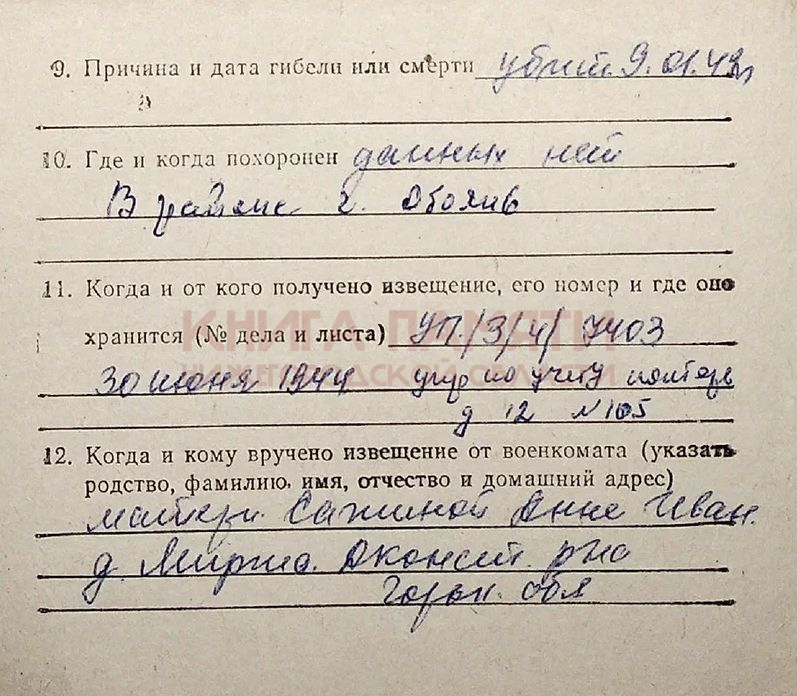 9. Причина и дата гибели или смерти убит 9.01.43г
10. Где и когда похоронен данных нет
В районе г. Оболив
11. Когда и от кого получено извещение, его номер и где оно
хранится (№ дела и листа) УП/3/4/ 7403
КНИГА ПАМЯТИ
НИЖЕГОРОДСКОЙ ОБЛАСТИ
30 июня 1944 упр по учету потерь
д 12 N 105
12. Когда и кому вручено извещение от военкомата (указать
родство, фамилию, имя, отчество и домашний адрес)
матери Сажиной Анне Иван.
д. Мирма. р-на
Горьк. обл